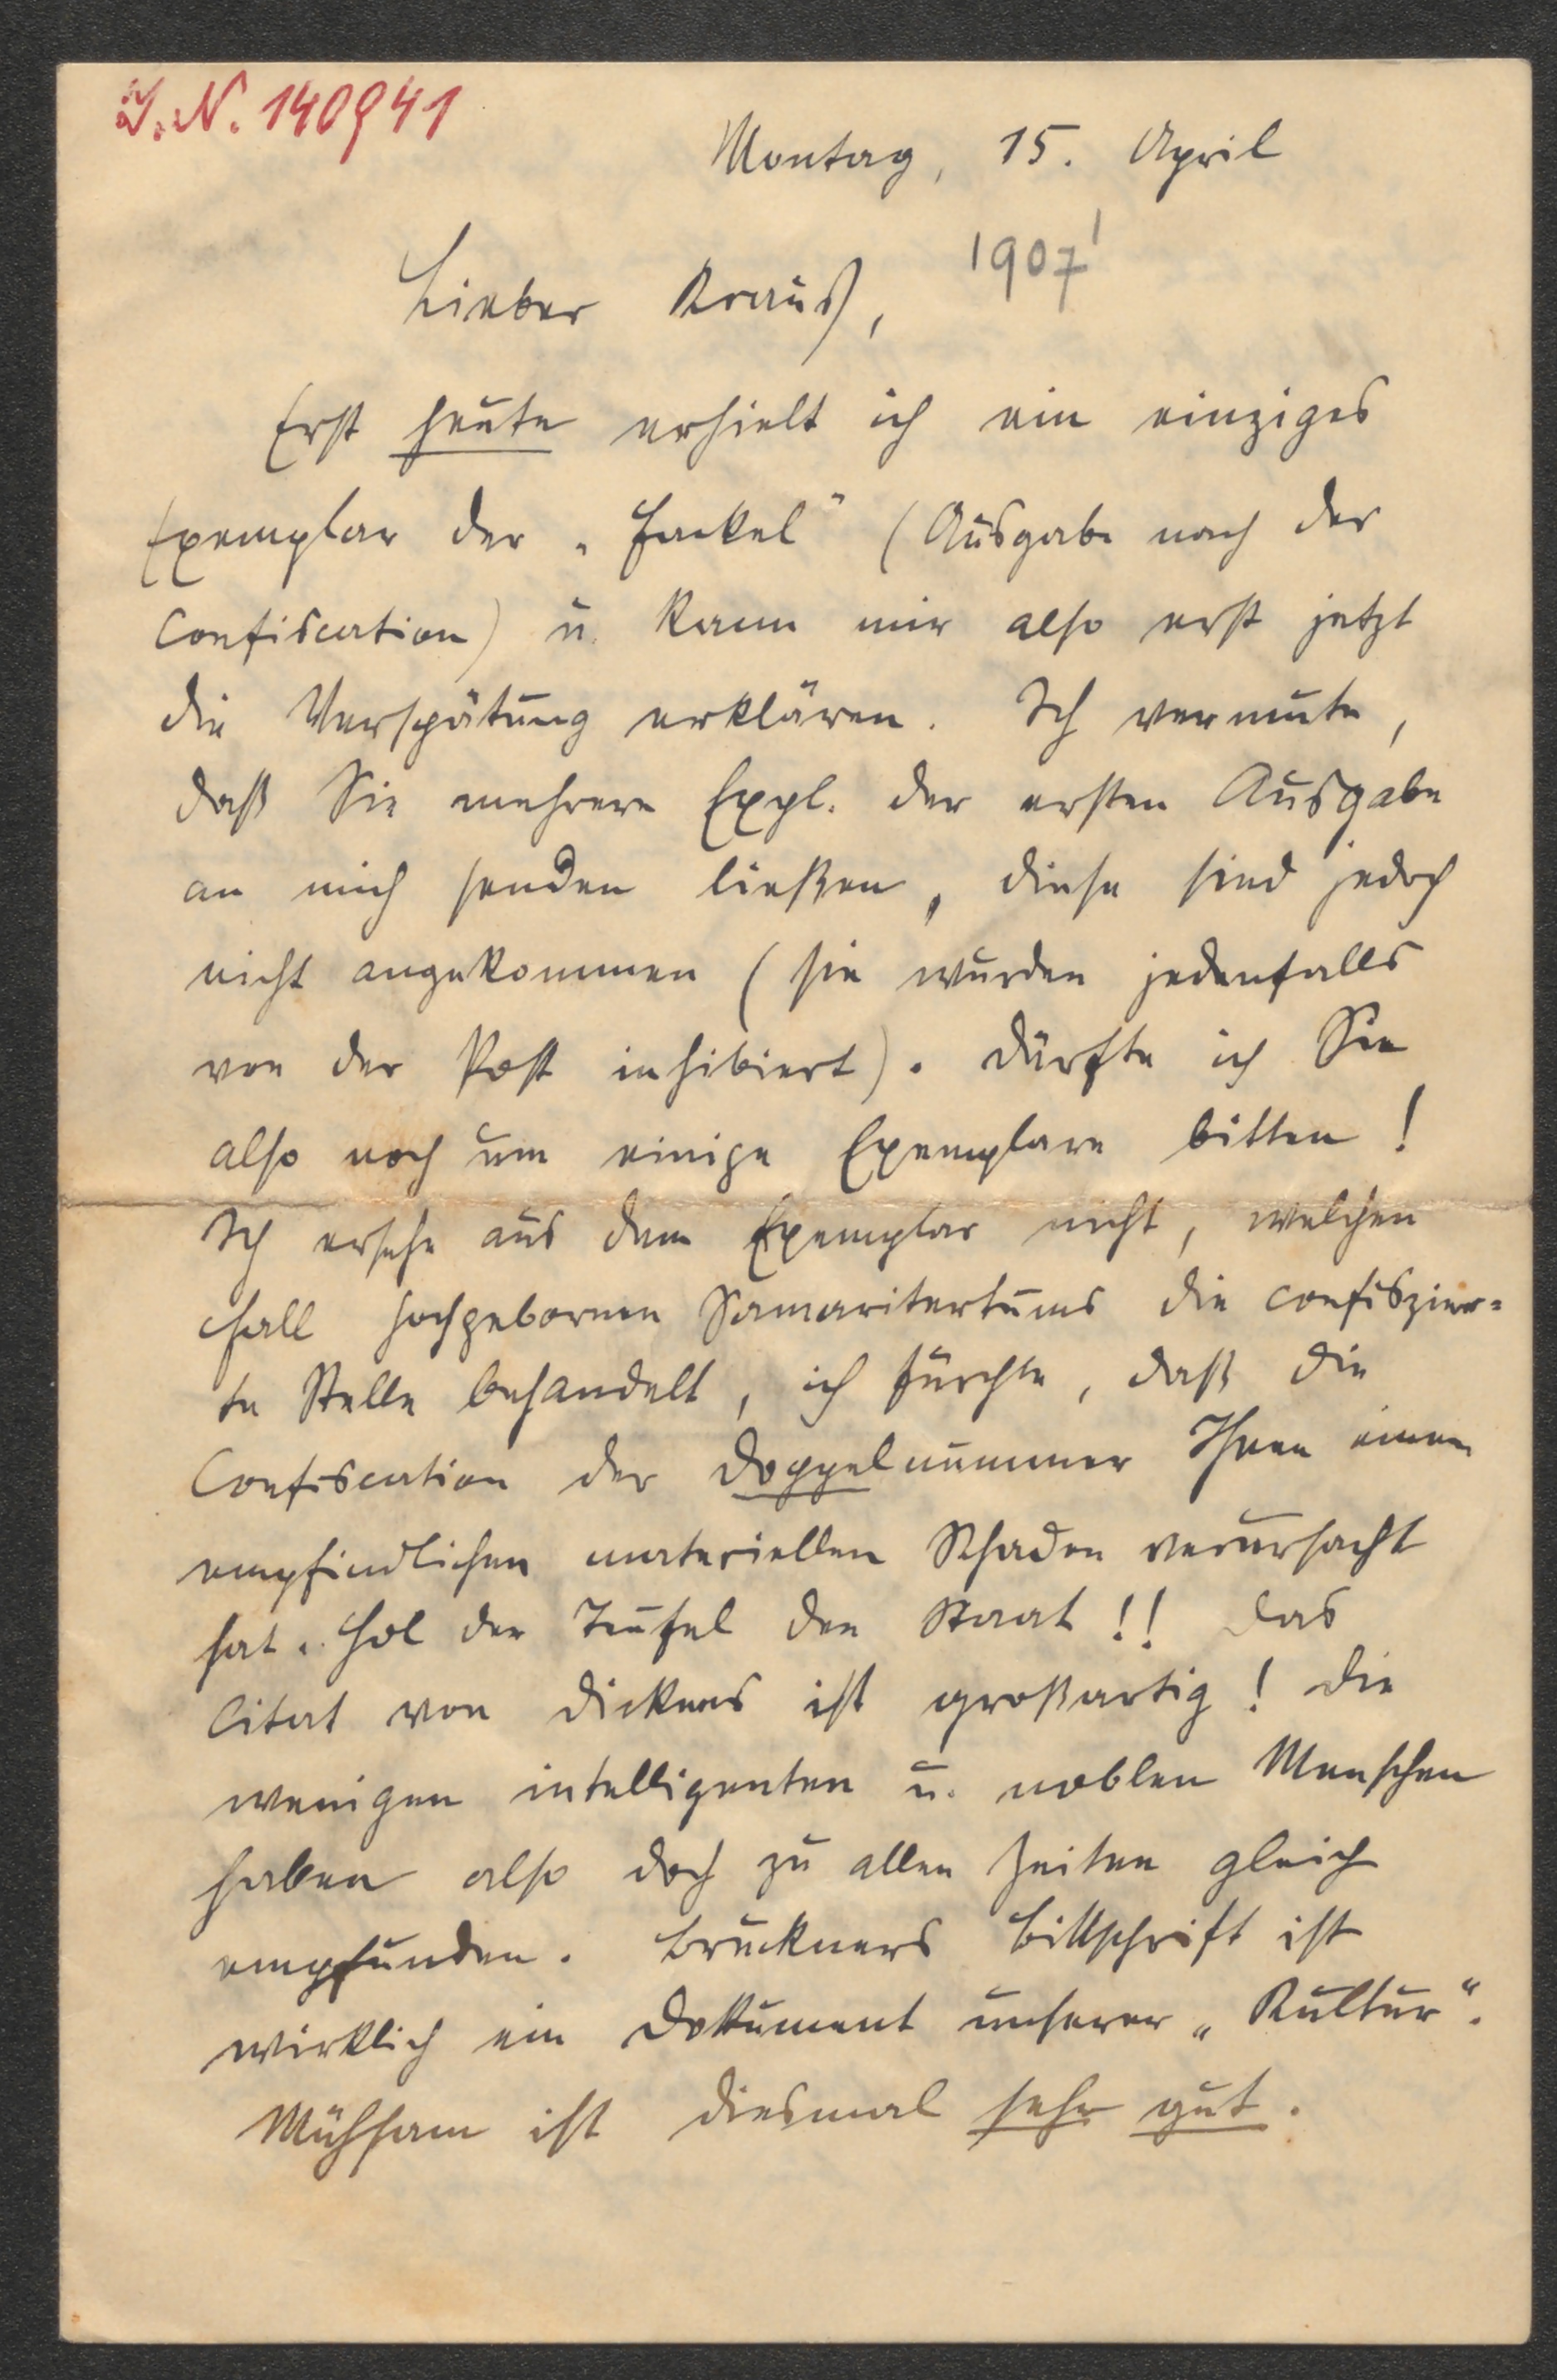 I. N. 140941
Montag, 15. April
1907
Lieber Kraus,
Erst heute erhielt ich ein einziges
Exemplar der „Fackel“ (Ausgabe nach der
Confiscation) u. kann mir also erst jetzt
die Verspätung erklären. Ich vermute,
daß Sie mehrere Expl. der ersten Ausgabe
an mich senden ließen, diese sind jedoch
nicht angekommen (sie wurden jedenfalls
von der Post inhibiert). Dürfte ich Sie
also noch um einige Exemplare bitten!
Ich ersehe aus dem Exemplar nicht, welchen
Fall hochgebornen Samaritertums die confiszier-
te Stelle behandelt, ich fürchte, daß die
Confiscation der Doppelnummer Ihnen einen
empfindlichen materiellen Schaden verursacht
hat. Hol der Teufel den Staat!! Das
Citat von Dickens ist großartig! Die
wenigen intelligenten u. noblen Menschen
haben also doch zu allen Zeiten gleich
empfunden. Bruckners Bittschrift ist
wirklich ein Dokument unserer „Kultur“.
Mühsam ist diesmal sehr gut.